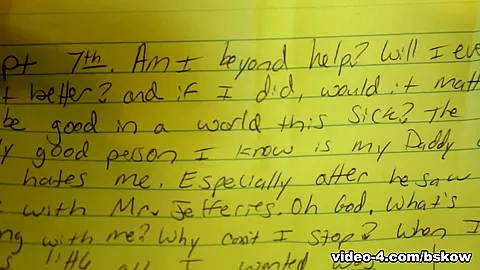 pt 7th. Am I beyond help? Will I eve
t better? and if I did, would it matt
be good in a world this sick? The
ly good person I know is my Daddy
hates me. Especially after he saw
with Mr. Jefferies. Oh God. What's
ng with me? Why can't I stop? When I
little all I wanted was
video-4.com/bskow